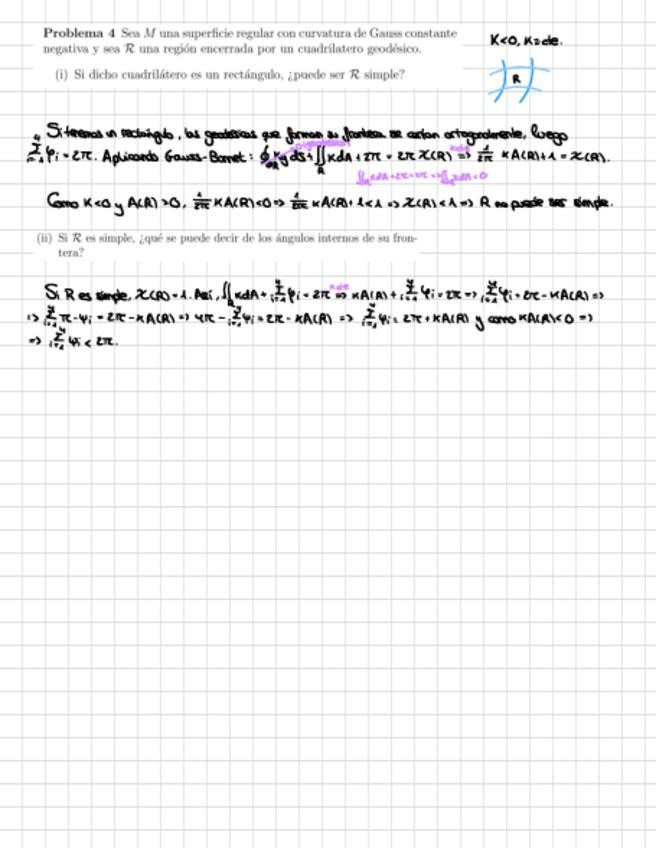 Problema 4 Sea M una superficie regular con curvatura de Gauss constante
K<0, K=cte.
negativa y sea R una región encerrada por un cuadrilatero geodésico.
R
(i) Si dicho cuadrilátero es un rectángulo, ¿puede ser R simple?
Si tenemos un rectángulo, las geodésicas que forman su frontera se cortan ortogonalmente, luego
∑φi = 2π. Aplicando Gauss-Bonnet: ∮∂R kg ds + ∬R KdA + 2π = 2π χ(R) => 1/2π KA(R)+1 = χ(R).
Como K<0 y A(R)>0, 1/2π KA(R)<0 => 1/2π KA(R)+1<1 => χ(R)<1 => R no puede ser simple.
(ii) Si R es simple, ¿qué se puede decir de los ángulos internos de su fron-
tera?
Si R es simple, χ(R)=1. Así, ∬R KdA + ∑φi = 2π => KA(R) + ∑φi = 2π => ∑φi = 2π - KA(R) =>
=> ∑π-ψi = 2π - KA(R) => 4π - ∑ψi = 2π - KA(R) => ∑ψi = 2π + KA(R) y como KA(R)<0 =>
=> ∑ψi < 2π.